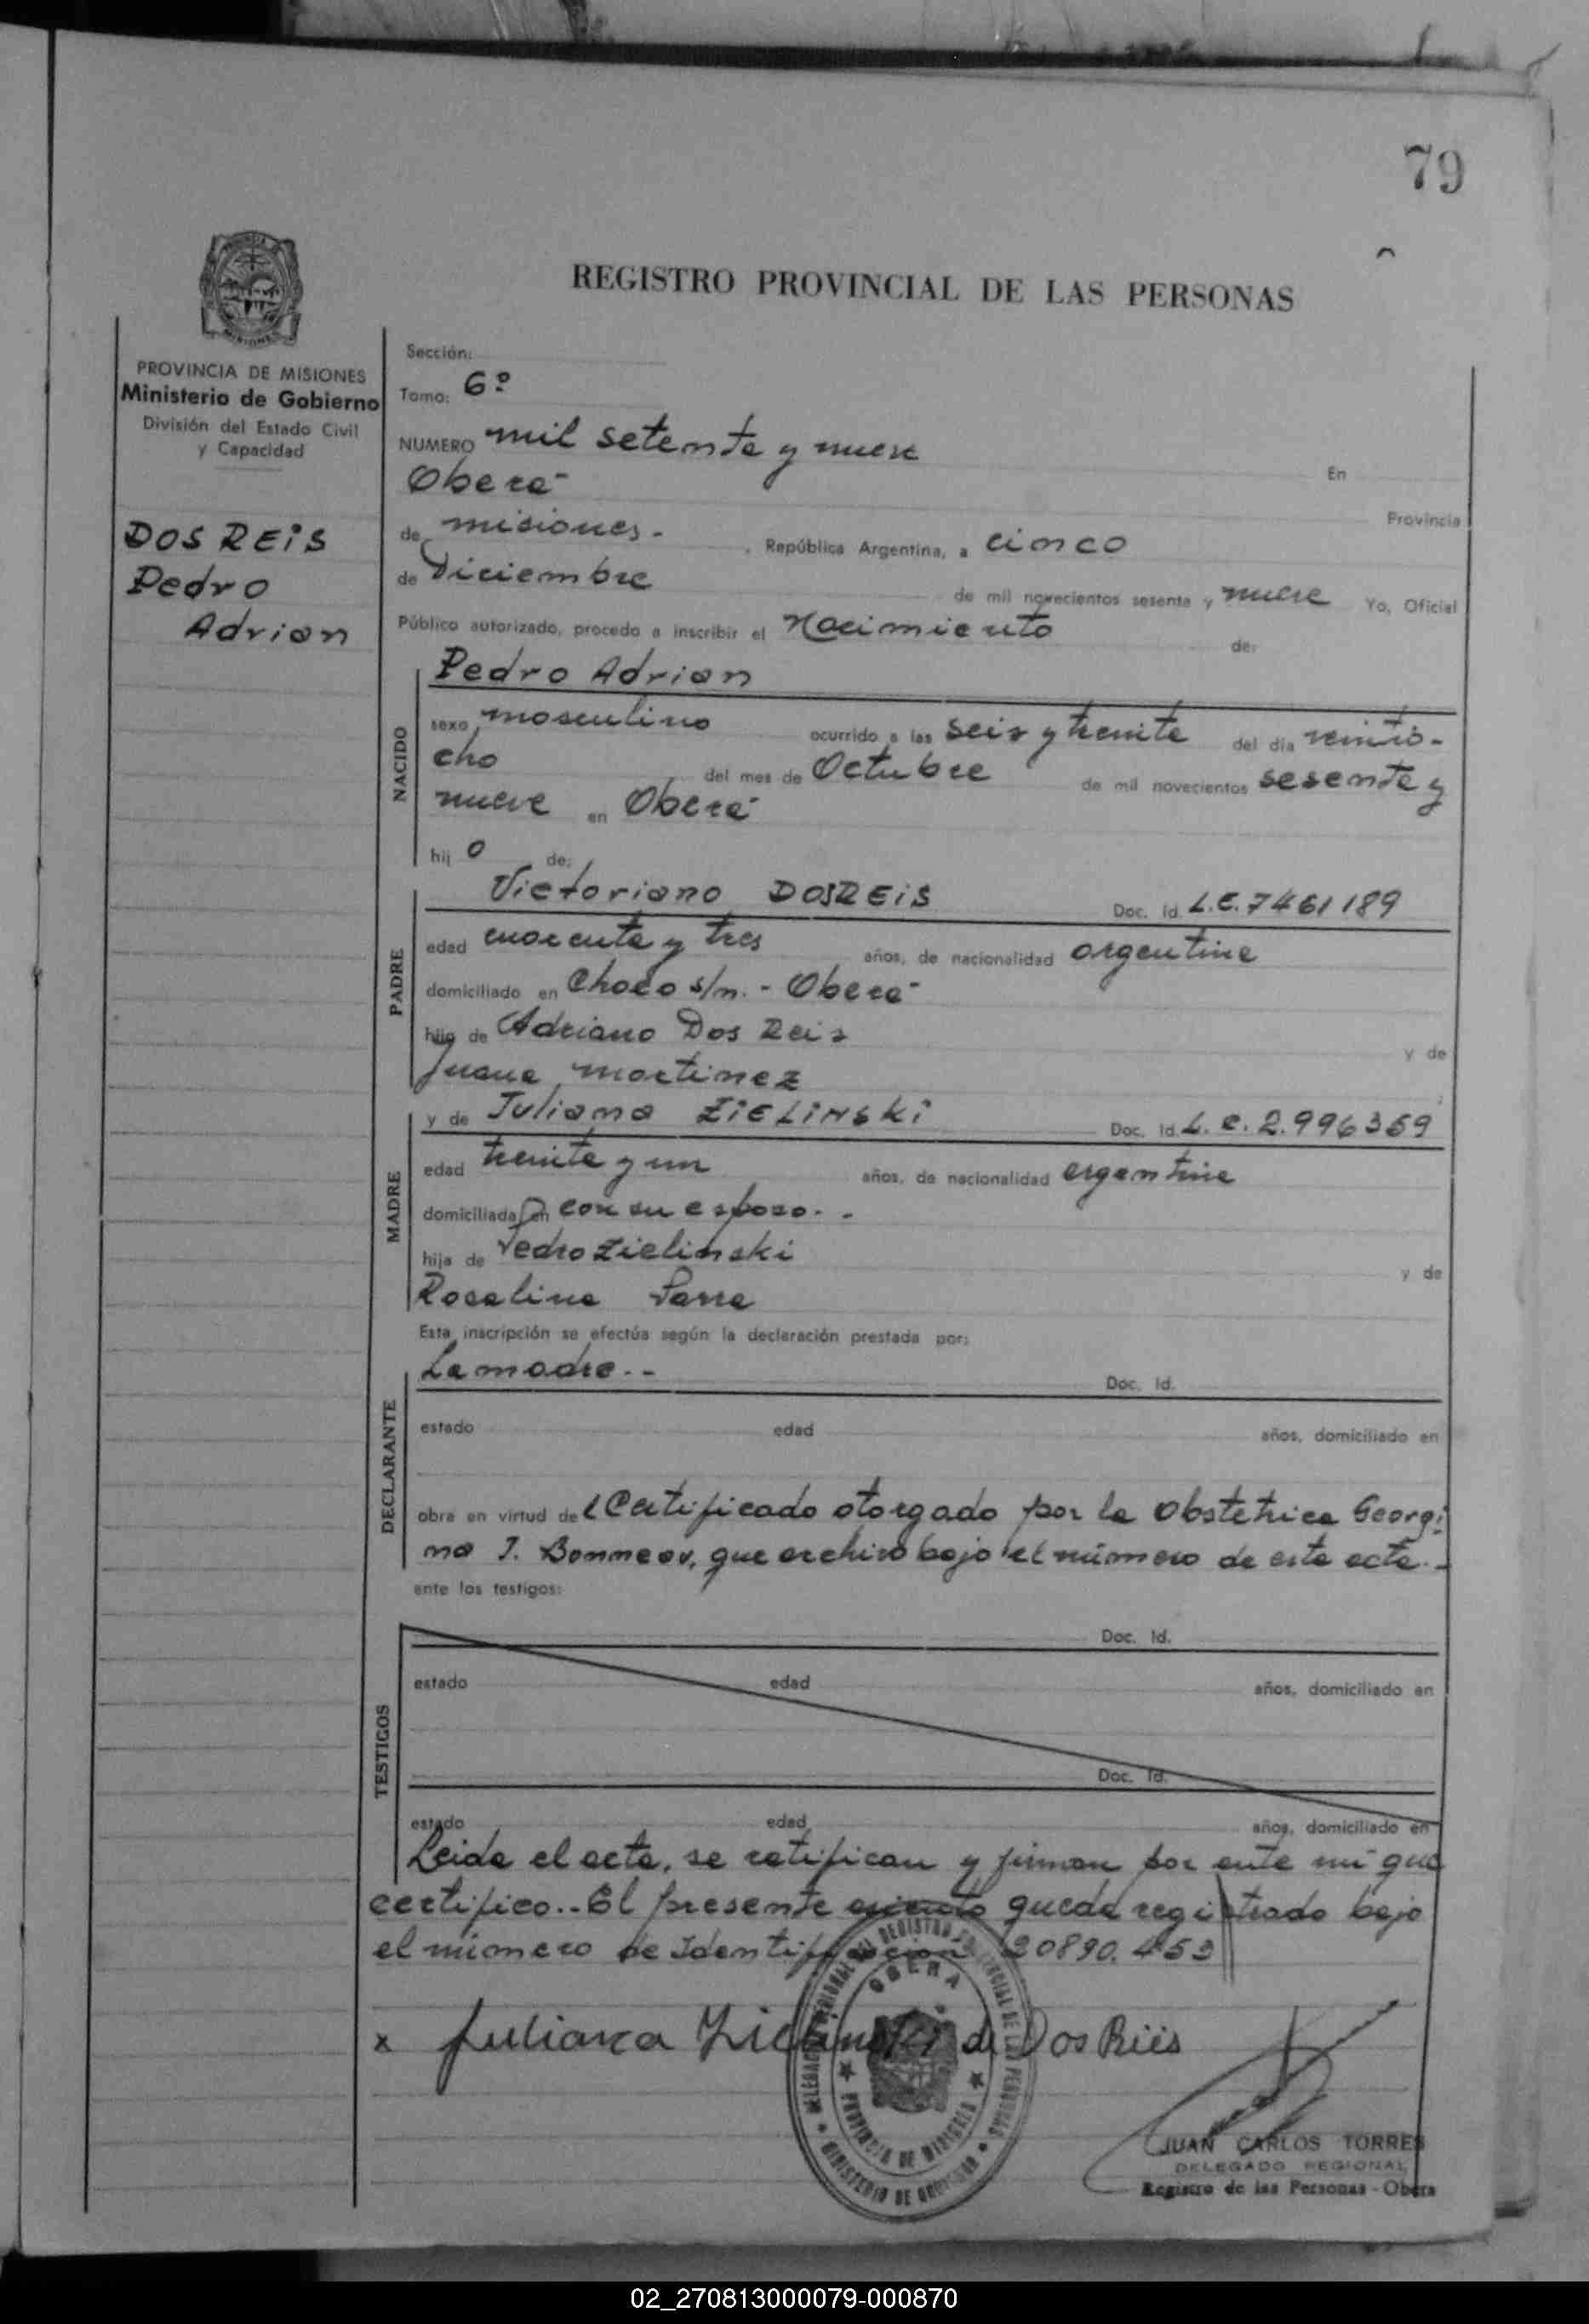 79
REGISTRO PROVINCIAL DE LAS PERSONAS
PROVINCIA DE MISIONES
Ministerio de Gobierno
División del Estado Civil
y Capacidad
DOS REIS
Pedro
Adrian
Sección:
Tomo: 6º
NUMERO mil setenta y nueve
En
Oberá
Provincia
de misiones.- , República Argentina, a cinco
de Diciembre de mil novecientos sesenta y nueve Yo, Oficial
Público autorizado, procedo a inscribir el Nacimiento de:
NACIDO
Pedro Adrian
sexo masculino ocurrido a las seis y treinta del día veintio-
cho del mes de Octubre de mil novecientos sesenta y
nueve en Oberá
hij o de:
PADRE
Victoriano DOS REIS Doc. Id. L.E. 7461189
edad cuarenta y tres años, de nacionalidad argentina
domiciliado en Chaco s/n.- Oberá
hijo de Adriano Dos Reis y de
Juana Martinez
MADRE
y de Juliana ZIELINSKI Doc. Id. L.C. 2.996359
edad treinta y un años, de nacionalidad argentina
domiciliada en con su esposo.-
hija de Pedro Zielinski y de
Rosalina
Esta inscripción se efectúa según la declaración prestada por:
DECLARANTE
La madre.-- Doc. Id.
estado edad años, domiciliado en
obra en virtud de l Certificado otorgado por la Obstetrica Georgi
na J. que archivo bajo el número de esta acta.-
ante los testigos:
TESTIGOS
Doc. Id.
estado edad años, domiciliado en
Doc. Id.
estado edad años, domiciliado en
Leida el acta, se ratifican y firman por ante mí que
certifico.. El presente asiento queda registrado bajo
el número de Identificación 20890.453
x Juliana Zielinski de Dos Reis
DELEGACION REGIONAL DEL REGISTRO PROVINCIAL DE LAS PERSONAS
OBERA
PROVINCIA DE MISIONES
MINISTERIO DE GOBIERNO
JUAN CARLOS TORRES
DELEGADO REGIONAL
Registro de las Personas - Oberá
02_270813000079-000870